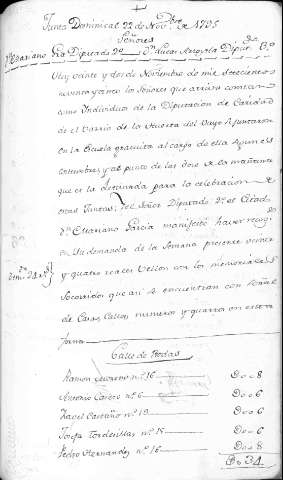 Junta Dominical 22 de Nov.bre de 1795
Señores
D.n Mariano Gra Diputado 2.o D.n Lucas Diput.do 3.o
Oy veinte y dos de Noviembre de mil setecientos
noventa y cinco los Señores que arriva constan
como Individuos de la Diputacion de Caridad
de el Barrio de la Huerta del Vayo se juntaron
en la Escuela gratuita al cargo de ella
costumbres y al punto de las dos de la mañana
que es la destinada para la celebracion de
estas Juntas; y el Señor Diputado 2.o el Citado
D.n Mariano Garcia manifestó haver recogido
en su demanda de la Semana presente veinte
y quatro reales Vellon con los memoriales
Socorridos que aqui se encuentran con señal
de Casas, Calles, numeros y quartos en esta
forma
Calle de Rodas
Ramon n.o 16 Do 8
Antonio n.o 6 Do 6
n.o 18 Do 6
Josefa Tordesillas n.o 18 Do 6
Pedro Hernandez n.o 16 Do 8
Do 34